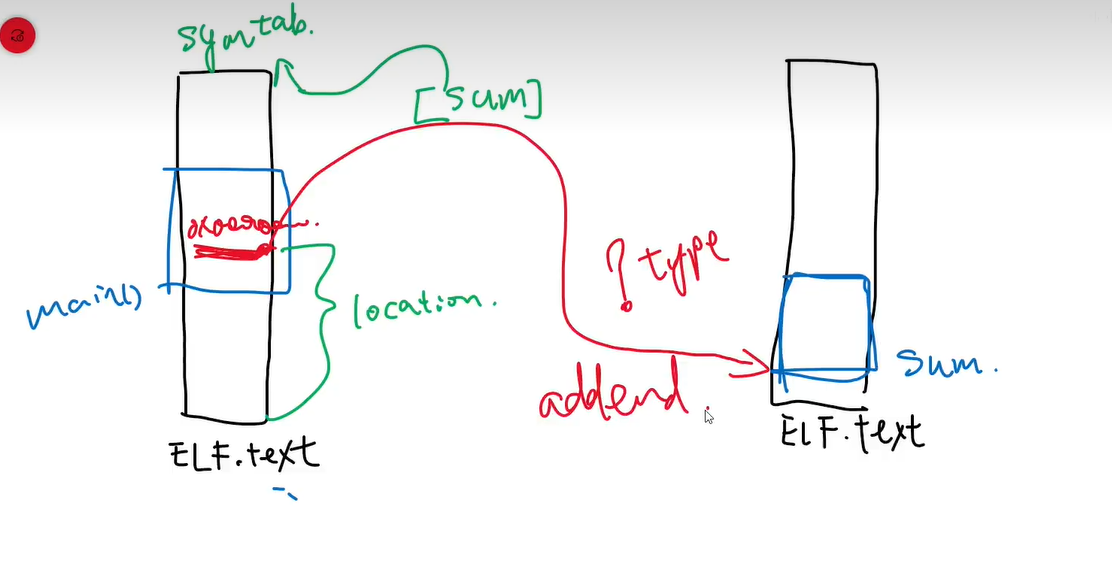 symtab.
[sum]
main()
location.
? type
addend.
sum.
ELF.text
ELF.text